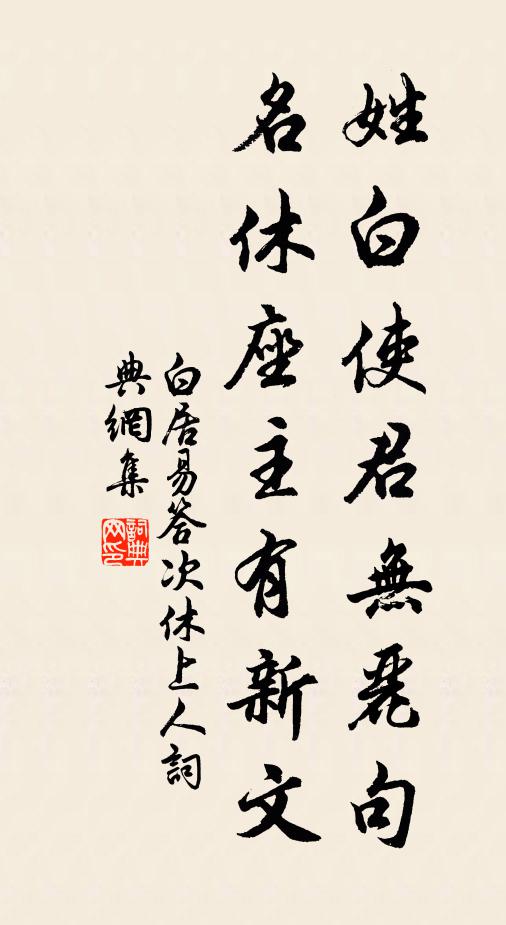 姓白使君無麗句
名休座主有新文
白居易答次休上人詞
典網集
詞典网印